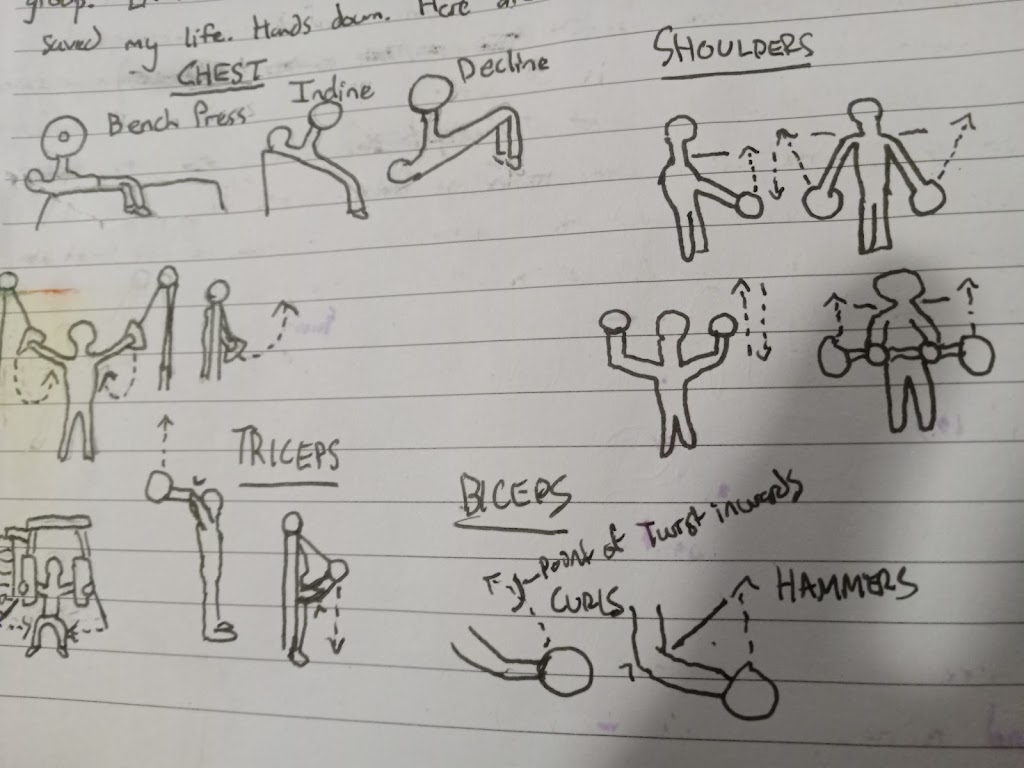 group.
saved my life. Hands down. Here
CHEST
Bench Press
Incline
Decline
SHOULDERS
TRICEPS
BICEPS
point of Twist inwards
CURLS
HAMMERS